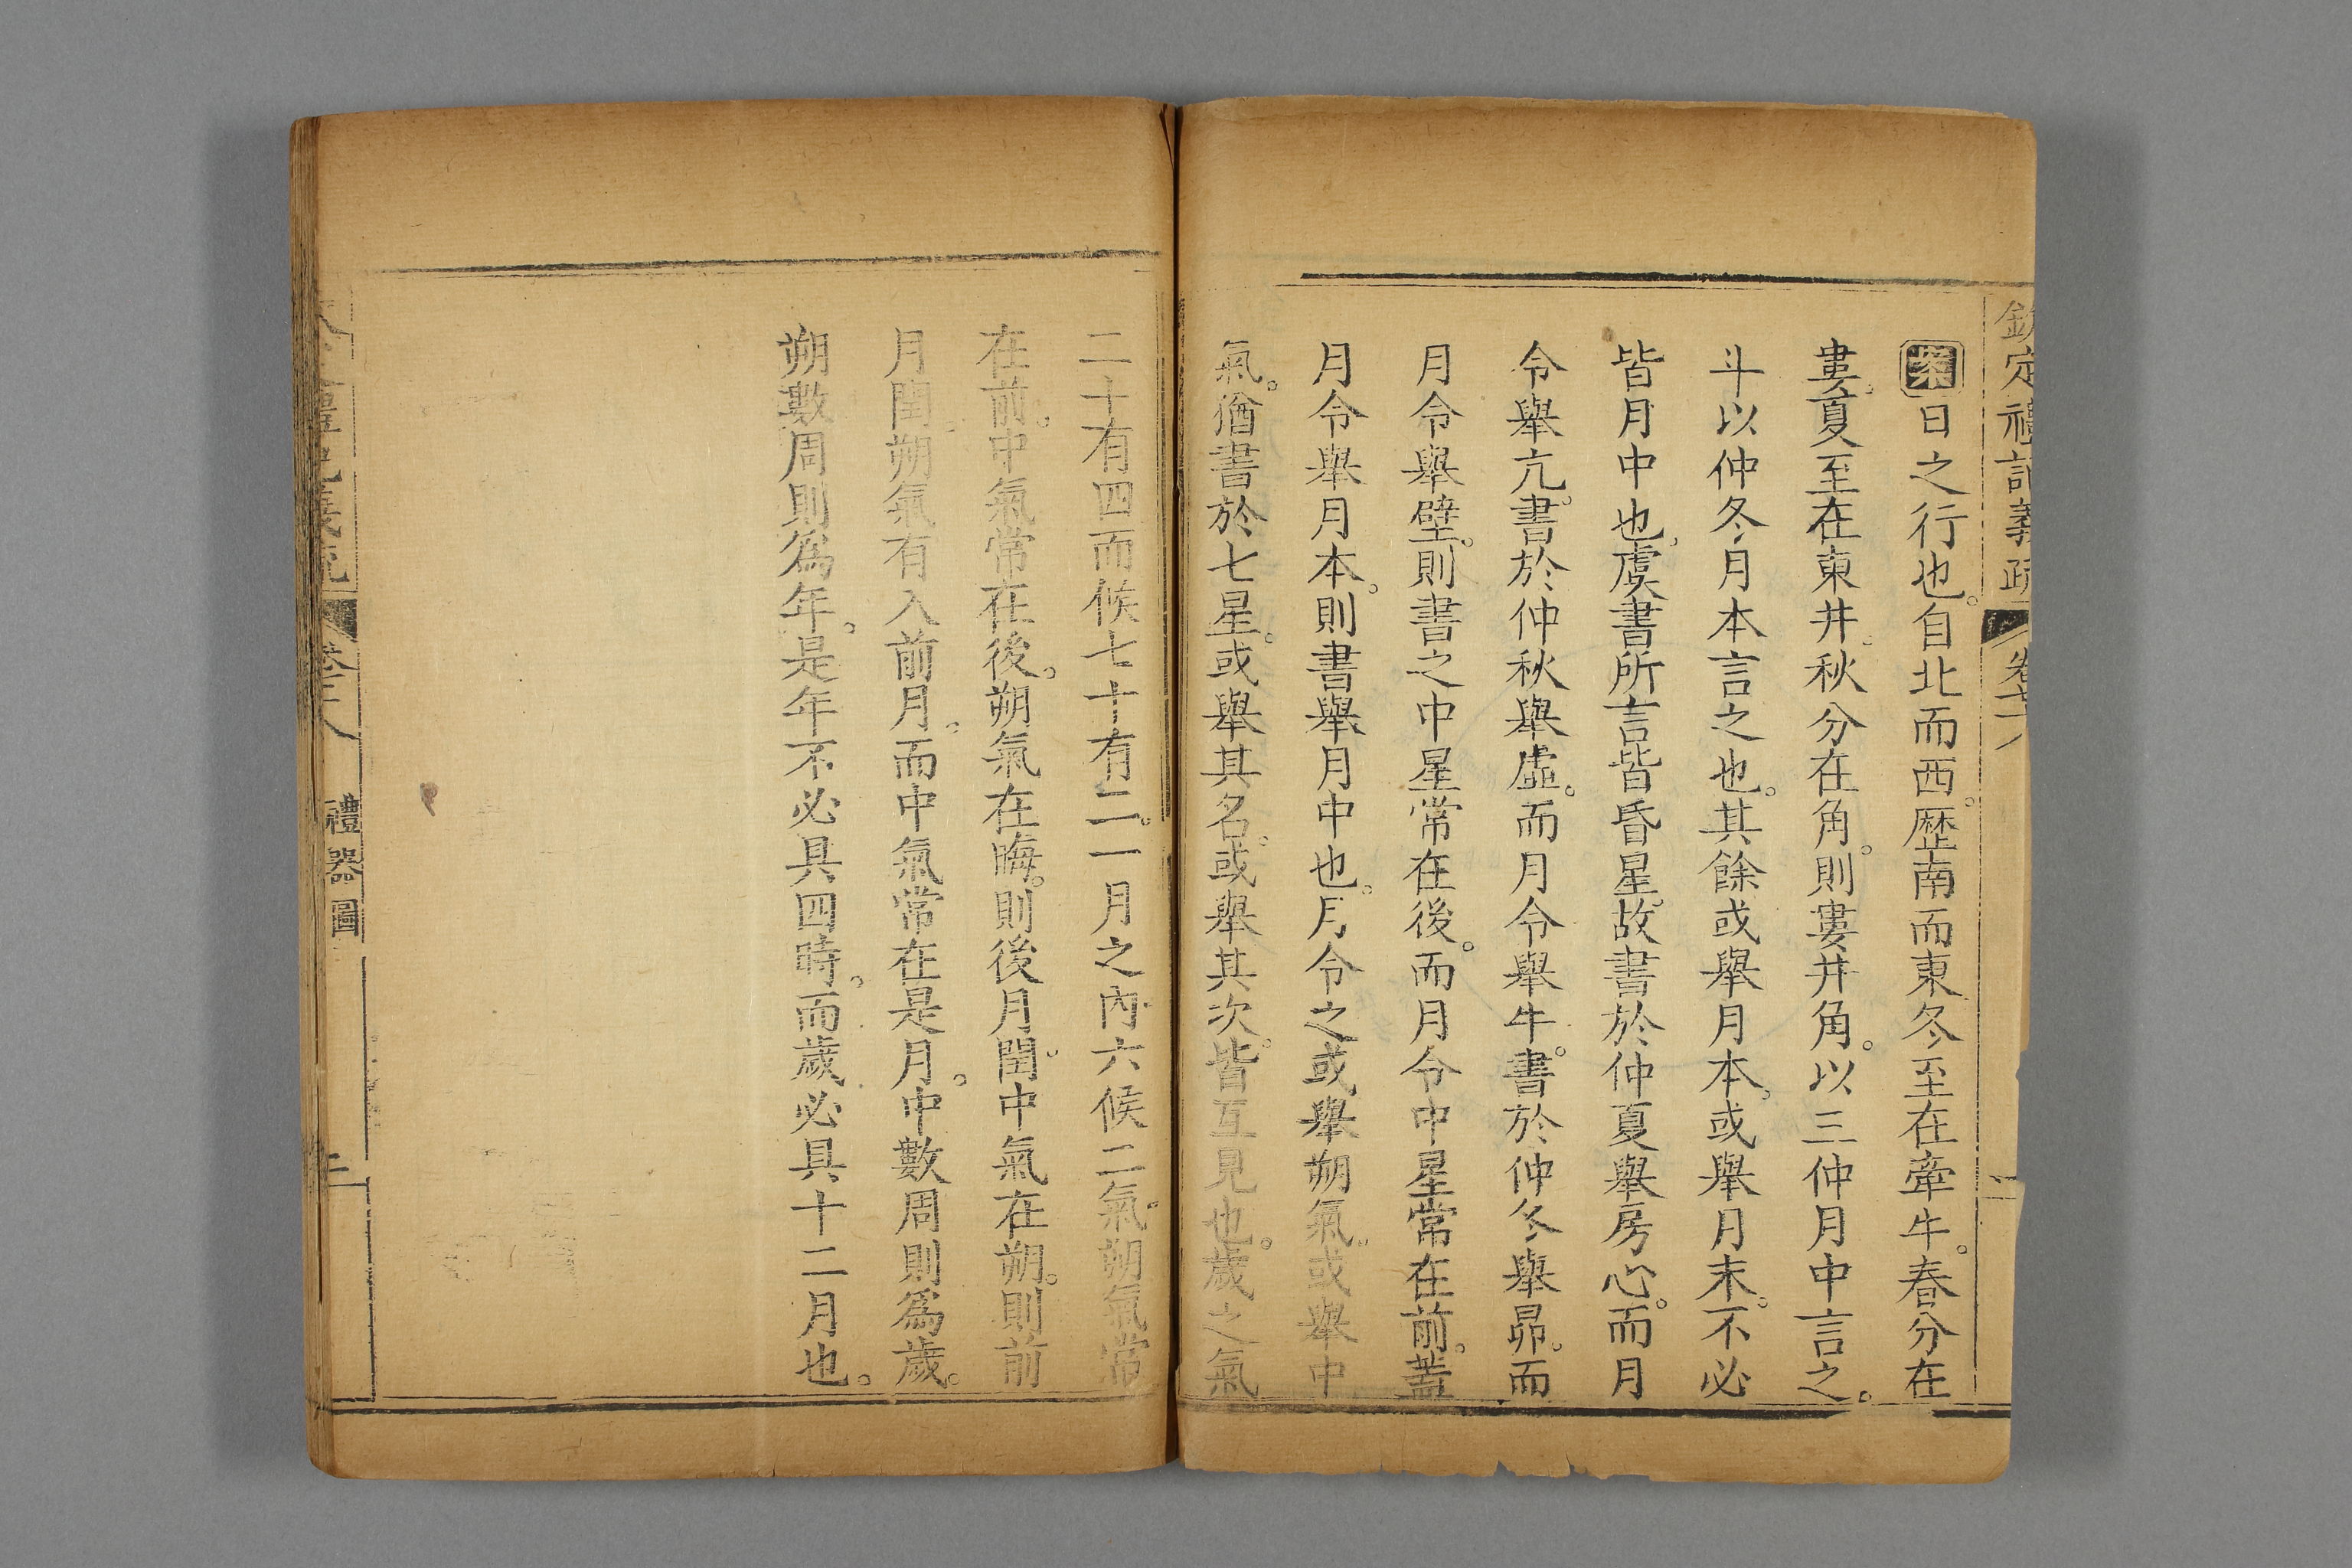 欽定禮記義疏 卷 八
案日之行也。自北而西。歷南而東冬至在牽牛。春分在
婁。夏至在東井。秋分在角。則婁井角。以三仲月中言之。
斗以仲冬月本言之也。其餘或舉月本。或舉月末。不必
皆月中也。虞書所言皆昏星。故書於仲夏舉房心。而月
令舉亢。書於仲秋舉虛。而月令舉牛。書於仲冬舉昴。而
月令舉壁。則書之中星常在後。而月令中星常在前。蓋
月令舉月本。則書舉月中也。月令之或舉朔氣。或舉中
氣。猶書於七星。或舉其名。或舉其次。皆互見也。歲之氣
二十有四而候七十有二。一月之內六候二氣。朔氣常
在前。中氣常在後。朔氣在晦。則後月閏。中氣在朔。則前
月閏。朔氣有入前月。而中氣常在是月。中數周則為歲。
朔數周則為年。是年不必具四時。而歲必具十二月也。
禮記義疏 卷 八 禮器圖